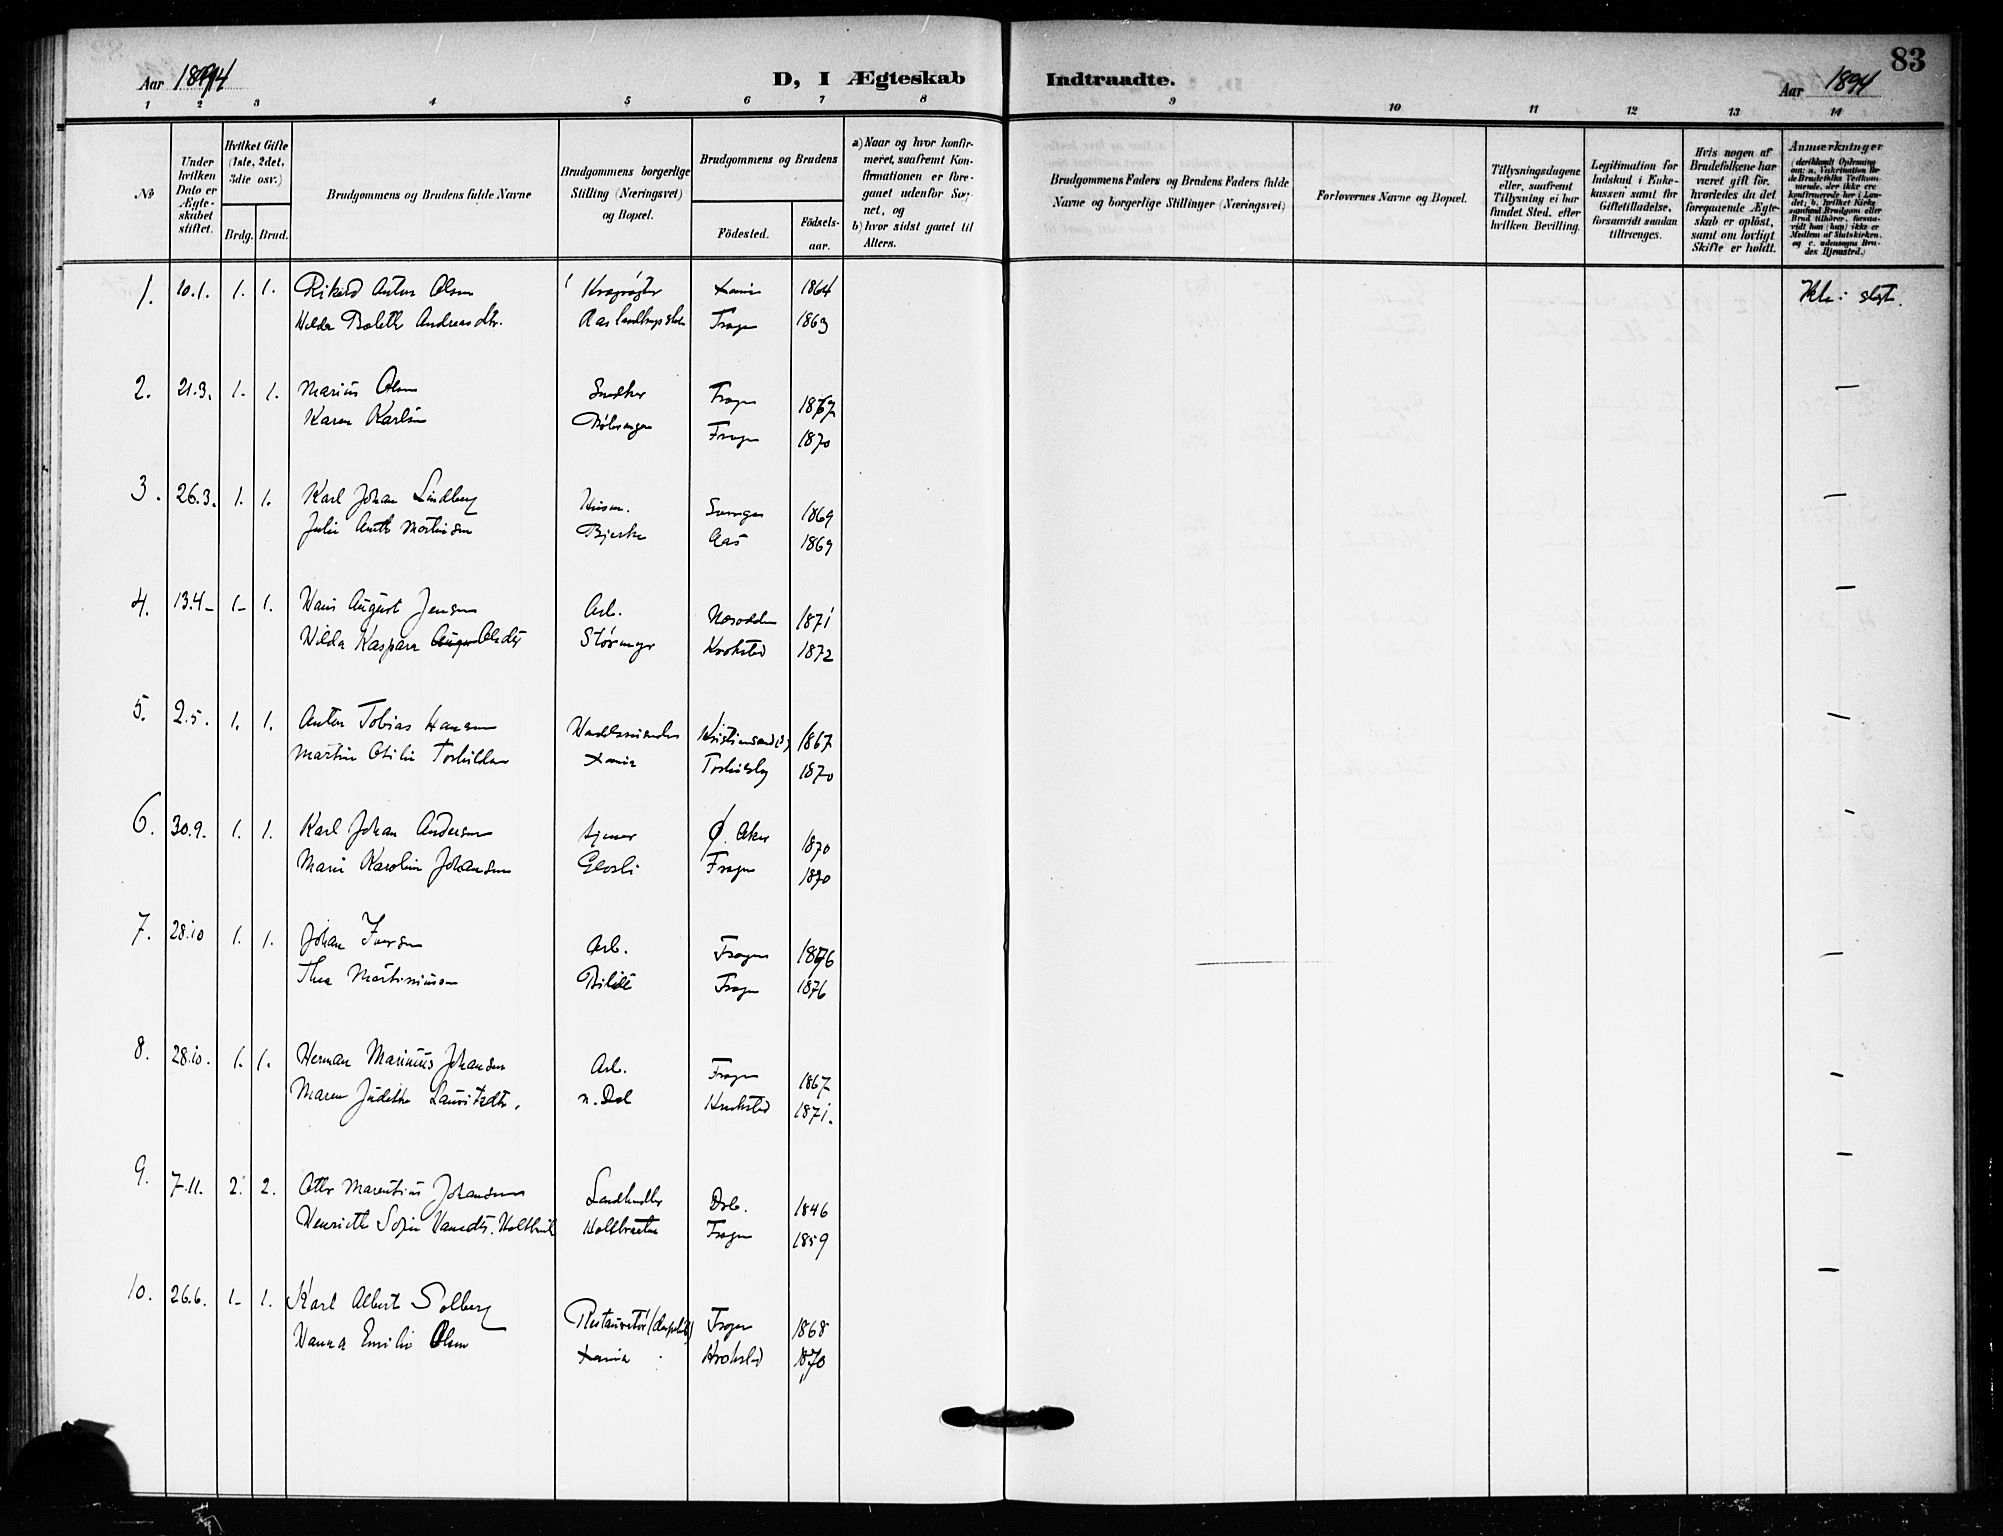 83
Aar 1894
D, I Ægteskab Indtraadte.
Aar 1894
1 2 3 4 5 6 7 8 9 10 11 12 13 14
No
Under hvilken Dato er Ægteskabet stiftet.
Hvilket Gifte (1ste, 2det, 3die osv.)
Brdg. Brud.
Brudgommens og Brudens fulde Navne
Brudgommens borgerlige Stilling (Næringsvei) og Bopæl.
Brudgommens og Brudens
Födested.
Födselsaar.
a) Naar og hvor konfirmeret, saafremt Konfirmationen er foregaaet udenfor Sognet, og
b) hvor sidst gaaet til Alters.
Brudgommens Faders og Brudens Faders fulde Navne og borgerlige Stillinger (Næringsvei)
Forlovernes Navne og Bopæl.
Tillysningsdagene eller, saafremt Tillysning ei har fundet Sted, efter hvilken Bevilling.
Legitimation for Indskud i Enkekassen samt for Giftetilladelse, forsaavidt saadan tiltrænges.
Hvis nogen af Brudefolkene har været gift før, hvorledes da det foregaaende Ægteskab er opløst, samt om lovligt Skifte er holdt.
Anmærkninger
1. 10.1. 1. 1. Rikard Anton Olsen Xania 1864
Hilda Bolette Andreasdtr. Frogn 1863
2. 21.3. 1. 1. Marius Olsen Snedker Frogn 1867
Karen Karlsen Frogn 1870
3. 26.3. 1. 1. Karl Johan Lindberg Husm. Sverige 1869 —
Julie Aneth Mortinsen Bjerke Aas 1869
4. 13.4 1. 1. Hans August Jensen Arb. Nesodden 1871 —
Hilda Kaspara Olsdtr Størmyr Krokstad 1872
5. 2.5. 1. 1. Anton Tobias Hansen Kristiansand 1867 —
Martin Otilie Torkildsen Xania 1870
6. 30.9. 1. 1. Karl Johan Andersen tjener Ø. Aker 1870 —
Marie Karoline Johansen Glosli Frogn 1870
7. 28.10 1. 1. Johan Iversen Arb. Frogn 1876 —
Thea Martiniusen Frogn 1876
8. 28.10. 1. 1. Herman Marinius Johansen Arb. Frogn 1867 —
Maren Judithe Lauritzdtr. n. Dal Krokstad 1871.
9. 7.11. 2. 2. Otto Marentius Johansen Landhandler Drb. 1846 —
Henriette Sofie Hansdtr. Holtbraaten Frogn 1859
10. 26.6. 1. 1. Karl Albert Solberg Frogn 1868 —
Hanna Emilie Olsen Xania Krokstad 1870